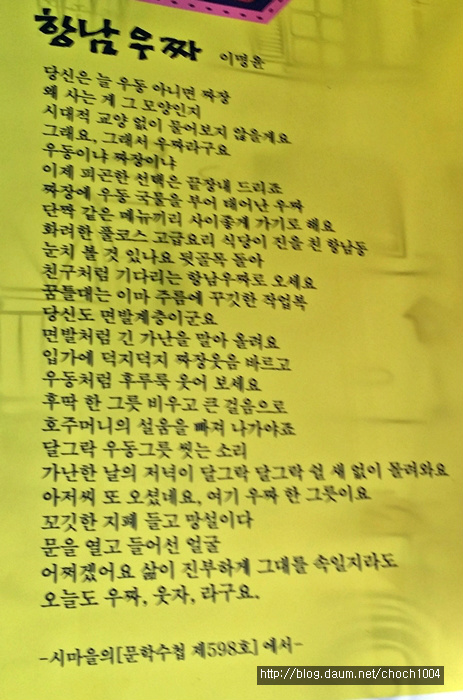 항남우짜 이명윤
당신은 늘 우동 아니면 짜장
왜 사는 게 그 모양인지
시대적 교양 없이 물어보지 않을게요
그래요, 그래서 우짜라구요
우동이냐 짜장이냐
이제 피곤한 선택은 끝장내 드리죠
짜장에 우동 국물을 부어 태어난 우짜
단짝 같은 메뉴끼리 사이좋게 가기로 해요
화려한 풀코스 고급요리 식당이 진을 친 항남동
눈치 볼 것 있나요 뒷골목 돌아
친구처럼 기다리는 항남우짜로 오세요
꿈틀대는 이마 주름에 꾸깃한 작업복
당신도 면발계층이군요
면발처럼 긴 가난을 말아 올려요
입가에 덕지덕지 짜장웃음 바르고
우동처럼 후루룩 웃어 보세요
후딱 한 그릇 비우고 큰 걸음으로
호주머니의 설움을 빠져 나가야죠
달그락 우동그릇 씻는 소리
가난한 날의 저녁이 달그락 달그락 쉴 새 없이 몰려와요
아저씨 또 오셨네요, 여기 우짜 한 그릇이요
꼬깃한 지폐 들고 망설이다
문을 열고 들어선 얼굴
어쩌겠어요 삶이 진부하게 그대를 속일지라도
오늘도 우짜, 웃자, 라구요.
-시마을의[문학수첩 제598호] 에서-
http://blog.daum.net/choch1004